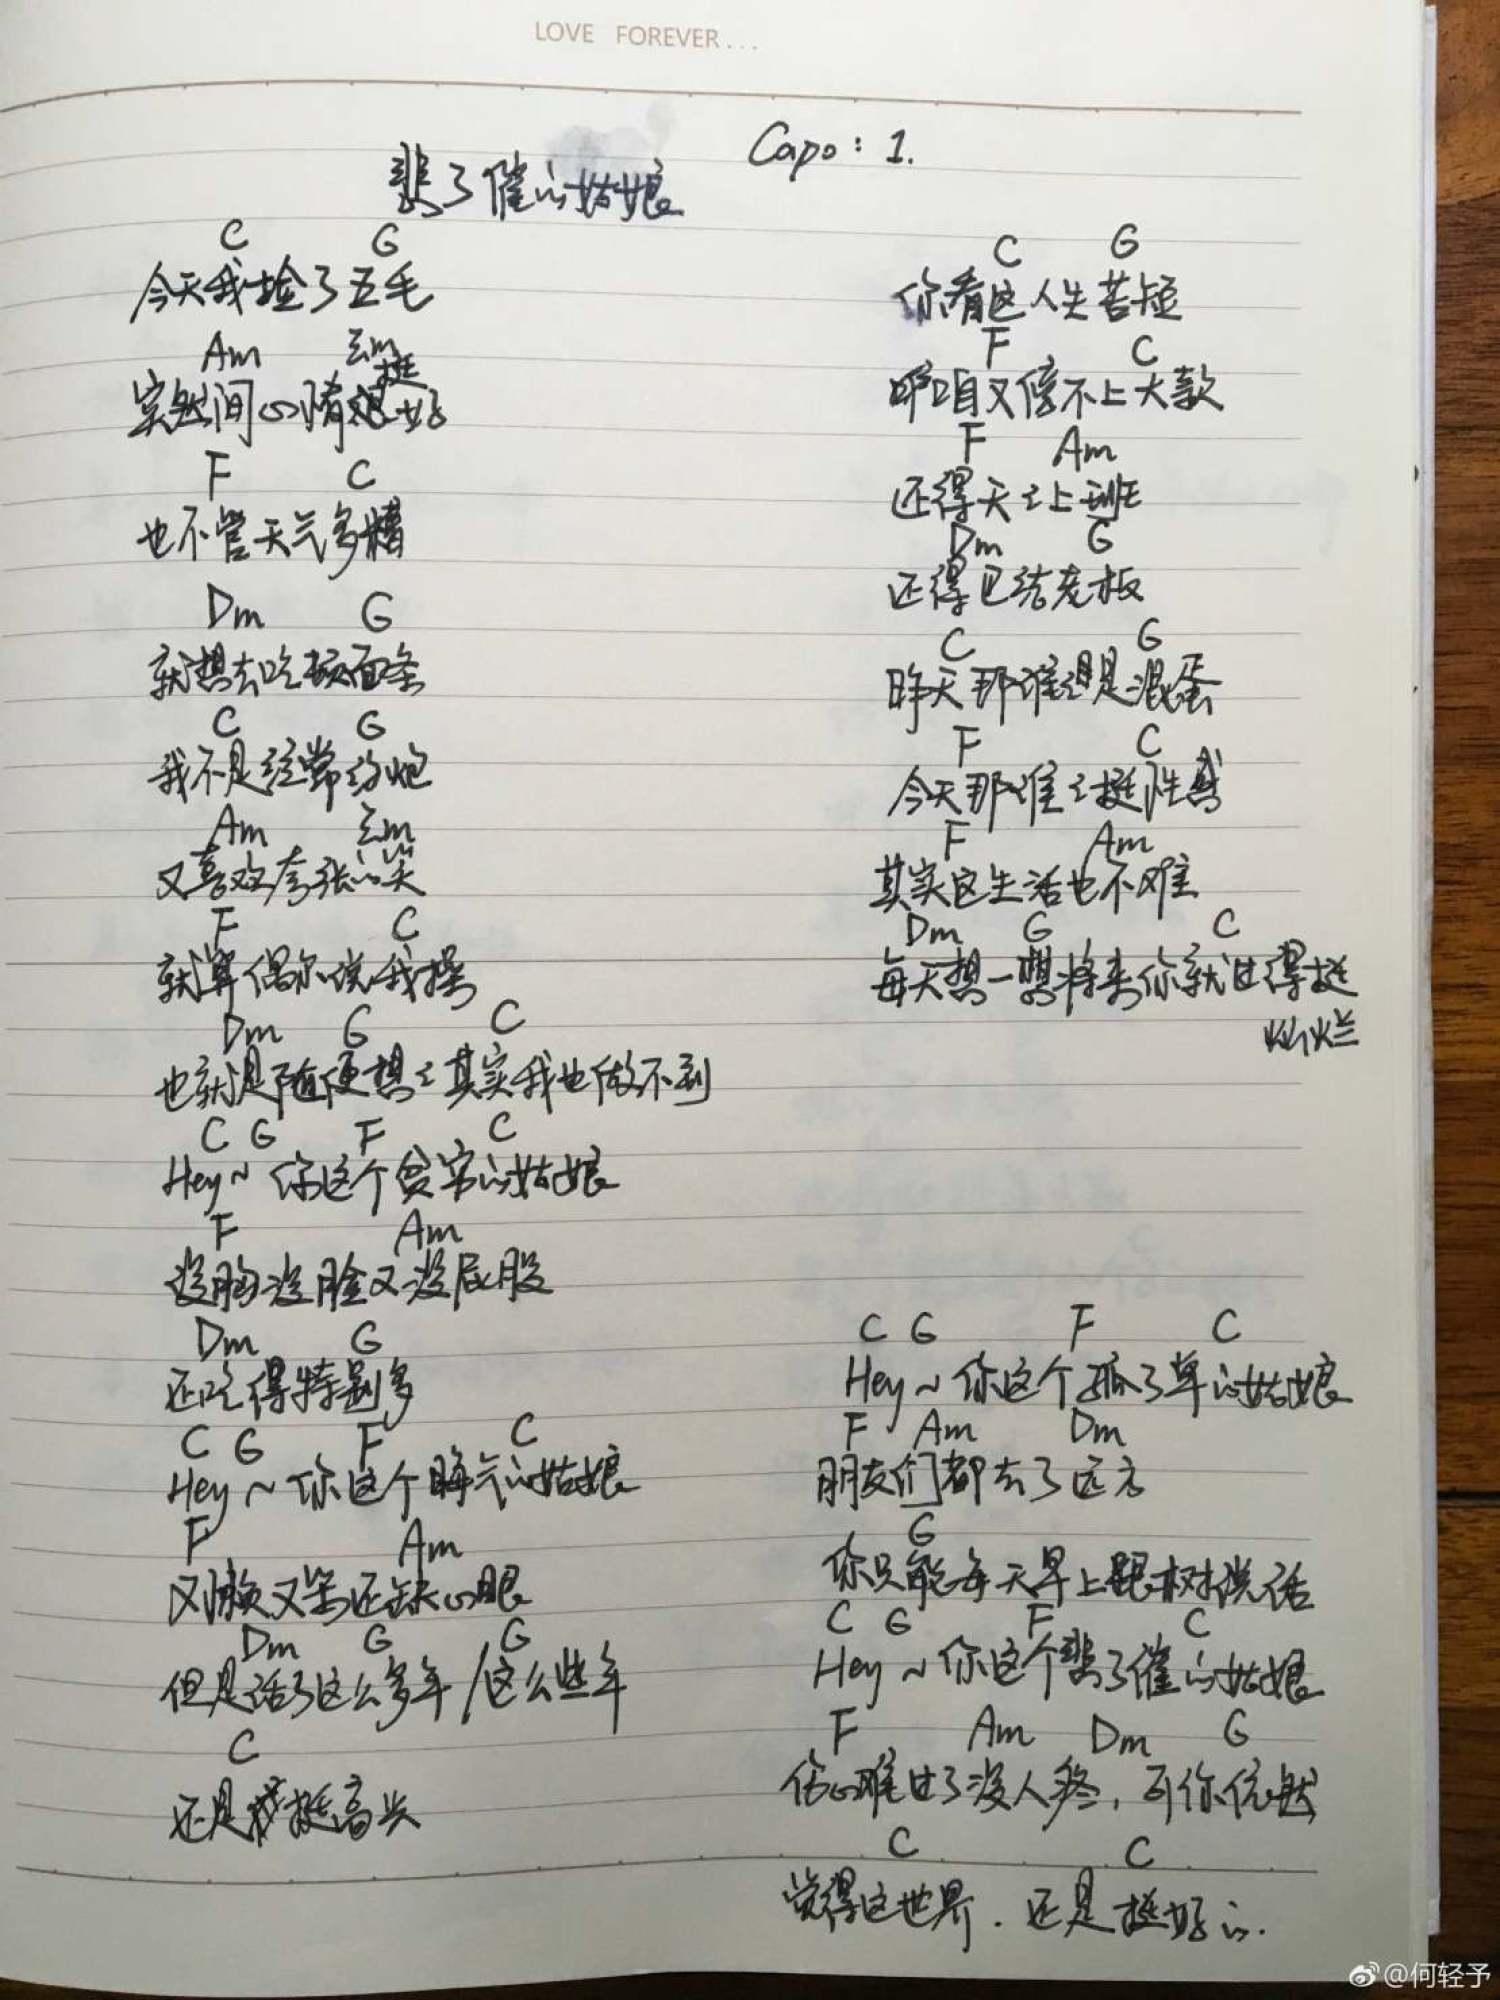 LOVE FOREVER...
Capo: 1.
悲了催的姑娘
C G
今天我捡了五毛
Am Em
突然间心情挺好
F C
也不管天气多糟
Dm G
就想去吃顿面条
C G
我不是经常约炮
Am Em
又喜欢夸张的笑
F C
就算偶尔说我操
Dm G C
也就是随便想想其实我也做不到
C G F C
Hey~ 你这个贫穷的姑娘
F Am
没胸没脸又没屁股
Dm G
还吃得特别多
C G F C
Hey~ 你这个晦气的姑娘
F Am
又懒又笨还缺心眼
Dm G G
但是活了这么多年/这么些年
C
还是挺高兴
C G
你看这人生苦短
F C
咱又傍不上大款
F Am
还得天天上班
Dm G
还得巴结老板
C G
昨天那谁谁是混蛋
F C
今天那谁谁挺性感
F Am
其实这生活也不难
Dm G C
每天想一想将来你就过得挺
灿烂
C G F C
Hey~ 你这个孤了单的姑娘
F Am Dm
朋友们都去了远方
G
你只能每天早上跟树说话
C G F C
Hey~ 你这个悲了催的姑娘
F Am Dm G
伤心难过了没人疼,可你依然
C C
觉得这世界.还是挺好的.
@何轻予